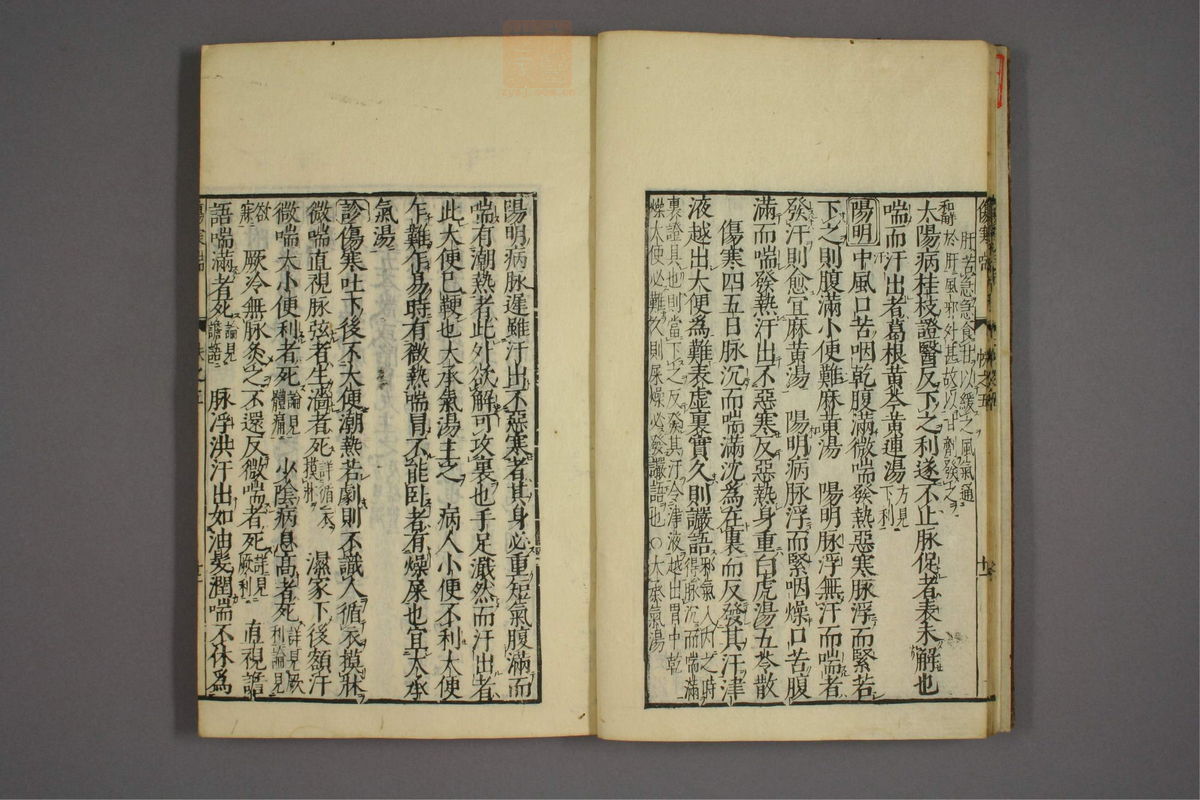 肝苦急急食甘以緩之風氣通
於肝風邪外甚故以甘劑發之
太陽病桂枝證醫反下之利遂不止脉促者表未解也
喘而汗出者葛根黃芩黃連湯方見下利
陽明中風口苦咽乾腹滿微喘發熱惡寒脉浮而緊若
下之則腹滿小便難麻黃湯 陽明脉浮無汗而喘者
發汗則愈宜麻黃湯 陽明病脉浮而緊咽燥口苦腹
滿而喘發熱汗出不惡寒反惡熱身重白虎湯五苓散
傷寒四五日脉沉而喘滿沈爲在裏而反發其汗津
液越出大便爲難表虚裏實久則讝語邪氣入内之時得脉沉而喘滿
裏證具也則當下之反發其汗令津液越出胃中乾
燥大便必難久則屎燥必發讝語也○大承氣湯
陽明病脉遲雖汗出不惡寒者其身必重短氣腹滿而
喘有潮熱者此外欲解可攻裏也手足濈然而汗出者
此大便已鞕也大承氣湯主之 病人小便不利大便
乍難乍易時有微熱喘冒不能卧者有燥屎也宜大承
氣湯
診傷寒吐下後不大便潮熱若劇則不識人循衣摸牀
微喘直視脉弦者生濇者死詳循衣摸牀 濕家下後額汗
微喘大小便利者死論見體痛 少陰病息高者死詳見厥利論見
欲寐 厥冷無脉灸之不還反微喘者死詳見厥利 直視譫
語喘滿者死論見譫語 脉浮洪汗出如油髮潤喘不休爲